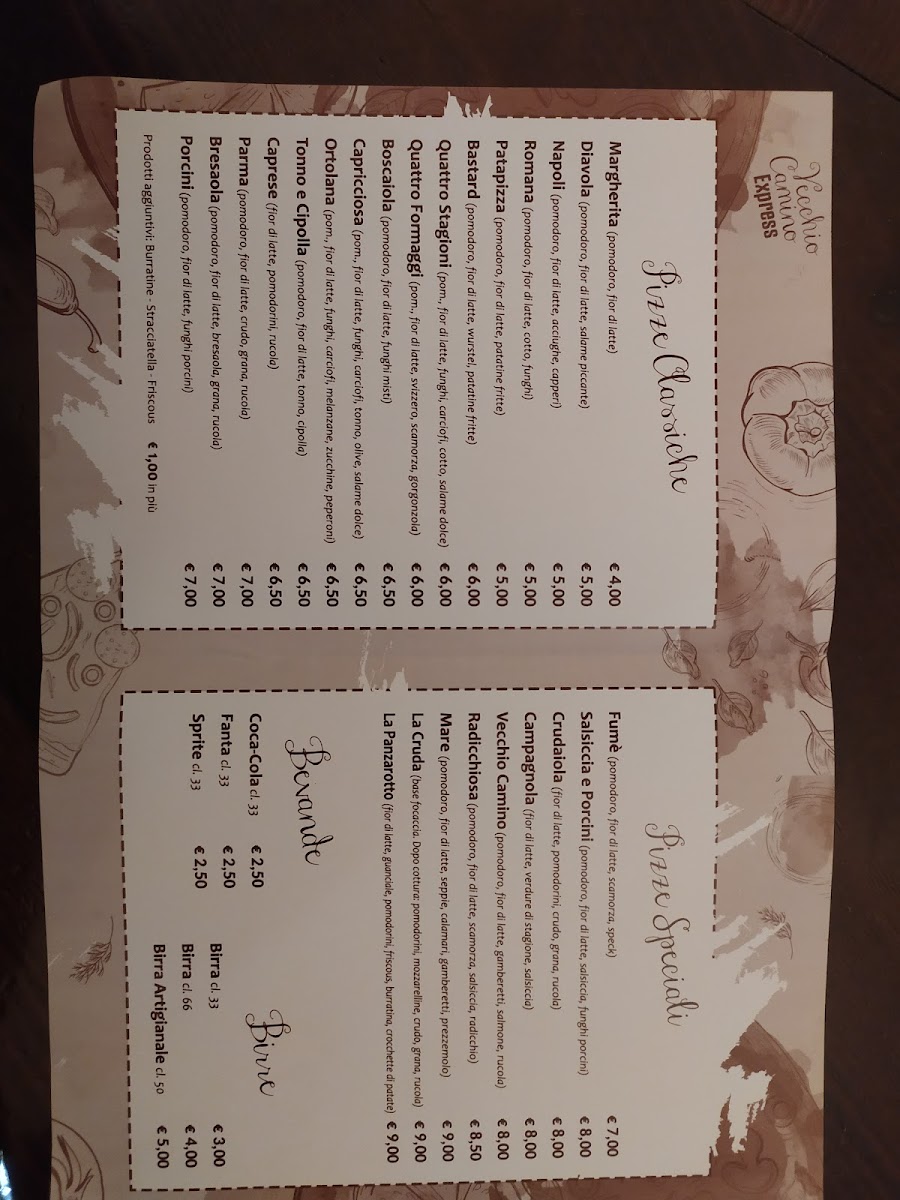 Vecchio
Camino
Express
Pizze Classiche
Margherita (pomodoro, fior di latte) € 4,00
Diavola (pomodoro, fior di latte, salame piccante) € 5,00
Napoli (pomodoro, fior di latte, acciughe, capperi) € 5,00
Romana (pomodoro, fior di latte, cotto, funghi) € 5,00
Patapizza (pomodoro, fior di latte, patatine fritte) € 5,00
Bastard (pomodoro, fior di latte, wurstel, patatine fritte) € 6,00
Quattro Stagioni (pom., fior di latte, funghi, carciofi, cotto, salame dolce) € 6,00
Quattro Formaggi (pom., fior di latte, svizzero, scamorza, gorgonzola) € 6,00
Boscaiola (pomodoro, fior di latte, funghi misti) € 6,50
Capricciosa (pom., fior di latte, funghi, carciofi, tonno, olive, salame dolce) € 6,50
Ortolana (pom., fior di latte, funghi, carciofi, melanzane, zucchine, peperoni) € 6,50
Tonno e Cipolla (pomodoro, fior di latte, tonno, cipolla) € 6,50
Caprese (fior di latte, pomodorini, rucola) € 6,50
Parma (pomodoro, fior di latte, crudo, grana, rucola) € 7,00
Bresaola (pomodoro, fior di latte, bresaola, grana, rucola) € 7,00
Porcini (pomodoro, fior di latte, funghi porcini) € 7,00
Prodotti aggiuntivi: Burratine - Stracciatella - Friscous € 1,00 in più
Pizze Speciali
Fumè (pomodoro, fior di latte, scamorza, speck) € 7,00
Salsiccia e Porcini (pomodoro, fior di latte, salsiccia, funghi porcini) € 8,00
Crudaiola (fior di latte, pomodorini, crudo, grana, rucola) € 8,00
Campagnola (fior di latte, verdure di stagione, salsiccia) € 8,00
Vecchio Camino (pomodoro, fior di latte, gamberetti, salmone, rucola) € 8,00
Radicchiosa (pomodoro, fior di latte, scamorza, salsiccia, radicchio) € 8,50
Mare (pomodoro, fior di latte, seppie, calamari, gamberetti, prezzemolo) € 9,00
La Cruda (base focaccia. Dopo cottura: pomodorini, mozzarelline, crudo, grana, rucola) € 9,00
La Panzarotto (fior di latte, guanciale, pomodorini, friscous, burratina, crocchette di patate) € 9,00
Bevande
Coca-Cola cl. 33 € 2,50
Fanta cl. 33 € 2,50
Sprite cl. 33 € 2,50
Birre
Birra cl. 33 € 3,00
Birra cl. 66 € 4,00
Birra Artigianale cl. 50 € 5,00